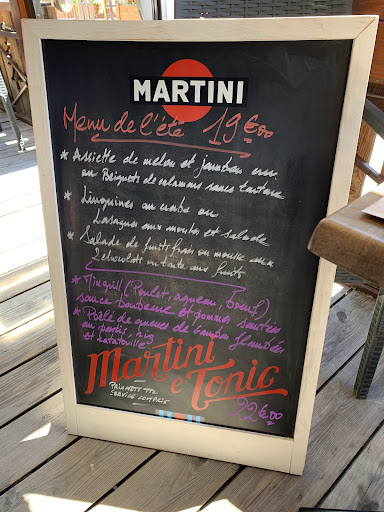 MARTINI
Menu de l'été 19€00
* Assiette de melon et jambon cru
ou Beignets de calamars sauce tartare
* Linguines au crabe ou
Lasagnes aux moules et salade
* Salade de fruits frais ou mousse aux
2 chocolats ou tarte aux fruits
* Mixgrill (Poulet, agneau, boeuf)
sauce et pommes sautées
* Poêlé de queues de flambées
au pastis, riz
et ratatouille
Martini
e Tonic
22€00
PRIX NETT TTC
SERVICE COMPRIS